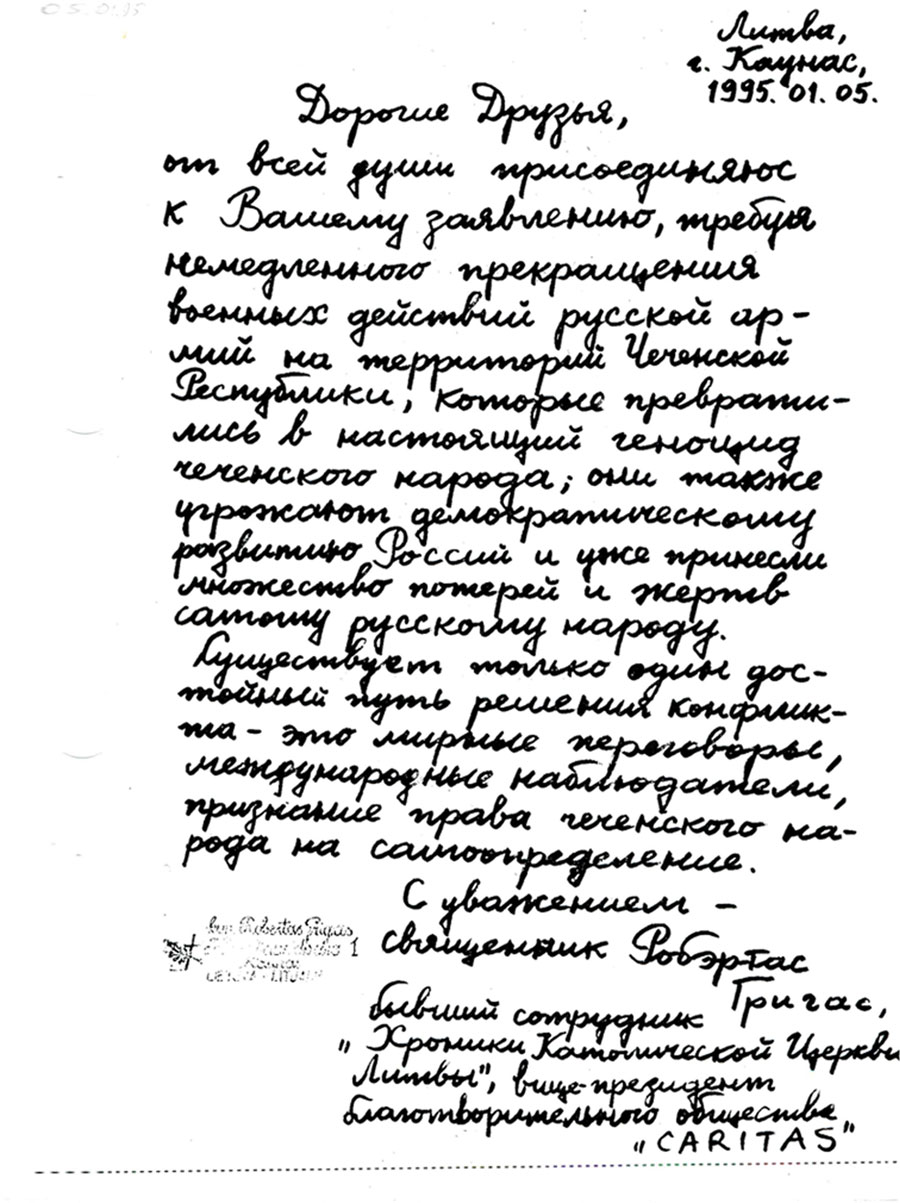 05.01.95
Литва,
г. Каунас,
1995. 01. 05.
Дорогие Друзья,
от всей души присоединяюс
к Вашему заявлению, требуя
немедленного прекращения
военных действий русской ар-
мий на территорий Чеченской
Республики, которые преврати-
лись в настоящий геноцид
чеченского народа; они также
угрожают демократическому
развитию Россий и уже принесли
множество потерей и жертв
самому русскому народу.
Существует только один дос-
тойный путь решения конфлик-
та - это мирные переговоры,
международные наблюдатели,
признание права чеченского на-
рода на самоопределение.
С уважением -
священник Робэртас
Григас,
бывший сотрудник
„Хроники Католической Церкви
Литвы", вице-президент
благотворительного общества
„CARITAS"
kun. Robertas Grigas
1
Kaunas
LIETUVA - LITUANIA